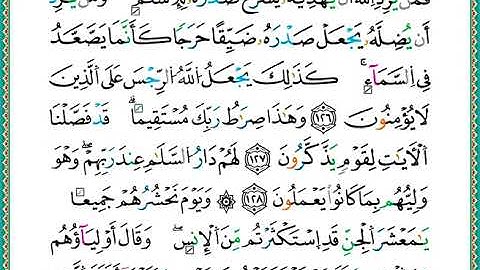 فَمَن يُرِدِ اللَّهُ أَن يَهْدِيَهُ يَشْرَحْ صَدْرَهُ لِلْإِسْلَٰمِ ۖ وَمَن يُرِدْ
أَن يُضِلَّهُ يَجْعَلْ صَدْرَهُ ضَيِّقًا حَرَجًا كَأَنَّمَا يَصَّعَّدُ
فِي السَّمَآءِ ۚ كَذَٰلِكَ يَجْعَلُ اللَّهُ الرِّجْسَ عَلَى الَّذِينَ
لَا يُؤْمِنُونَ ١٢٦ وَهَٰذَا صِرَٰطُ رَبِّكَ مُسْتَقِيمًا ۗ قَدْ فَصَّلْنَا
الْأٓيَٰتِ لِقَوْمٍ يَذَّكَّرُونَ ١٢٧ لَهُمْ دَارُ السَّلَٰمِ عِندَ رَبِّهِمْ ۖ وَهُوَ
وَلِيُّهُم بِمَا كَانُوا۟ يَعْمَلُونَ ١٢٨ ۞ وَيَوْمَ نَحْشُرُهُمْ جَمِيعًا
يَٰمَعْشَرَ الْجِنِّ قَدِ اسْتَكْثَرْتُم مِّنَ الْإِنسِ ۖ وَقَالَ أَوْلِيَآؤُهُم